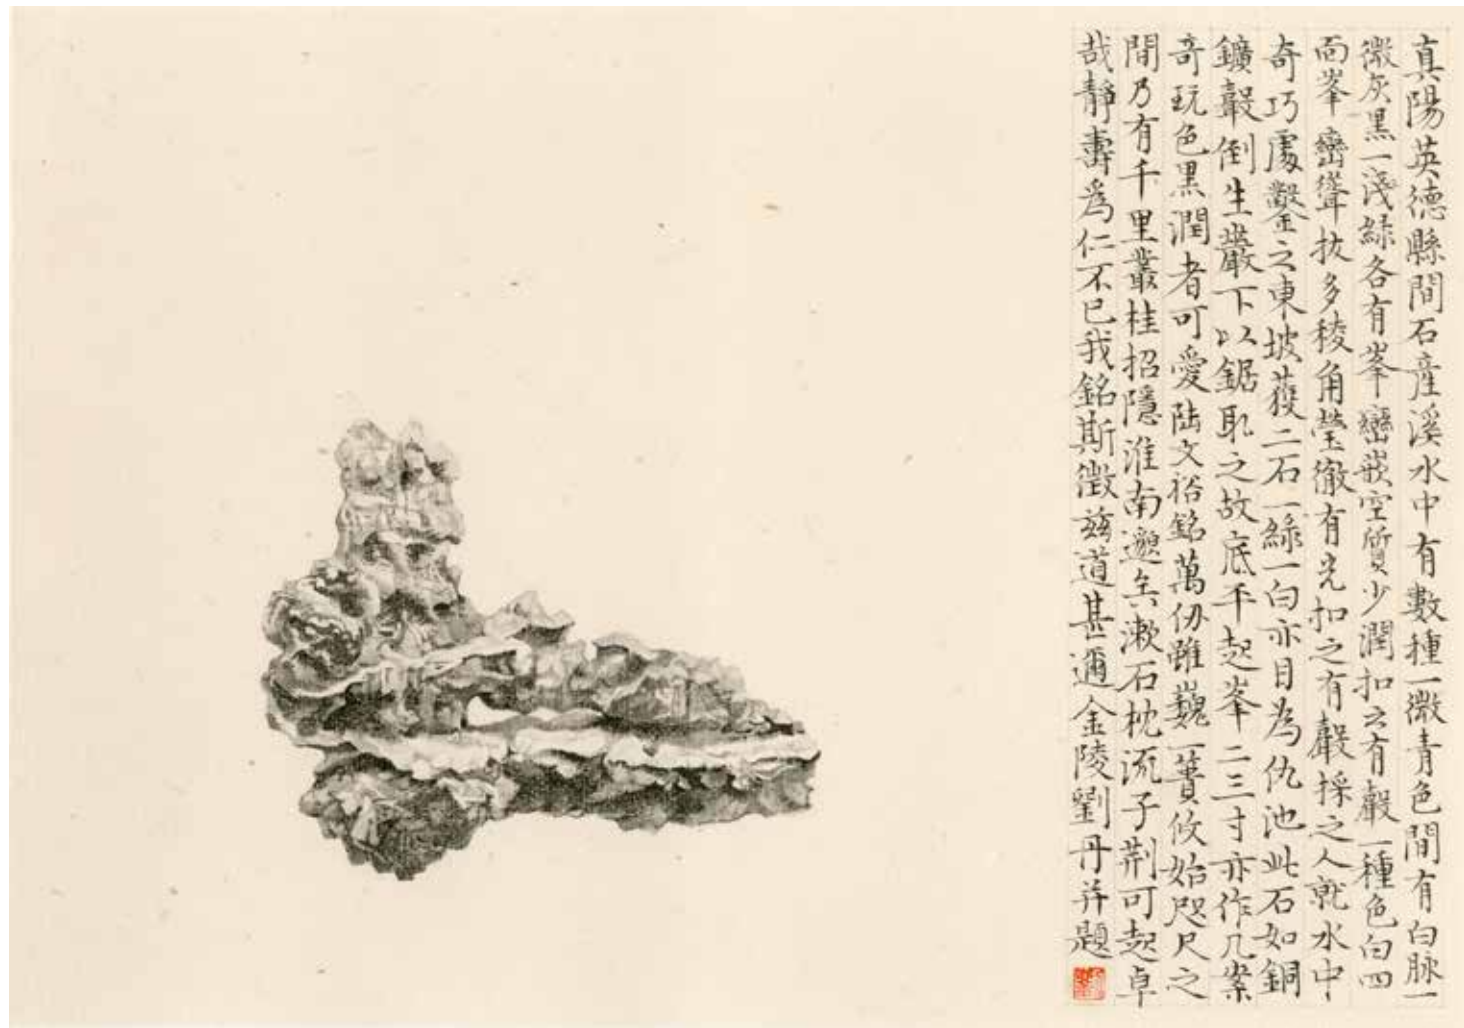 真陽英德縣間石產溪水中有數種一微青色間有白脉一
微灰黑一淺綠各有峯巒嵌空質少潤扣之有聲一種色白四
面峯巒聳拔多稜角瑩徹有光扣之有聲採之人就水中
奇巧處鑿之東坡獲二石一綠一白亦目為仇池此石如銅
鑛聲倒生巖下以鋸取之故底平起峯二三寸亦作几案
奇玩色黑潤者可愛陆文裕銘萬仞雖巍一簣攸始咫尺之
間乃有千里叢桂招隱淮南邈矣漱石枕流子荆可起卓
哉靜壽爲仁不已我銘斯徵兹道甚邇金陵劉丹并題